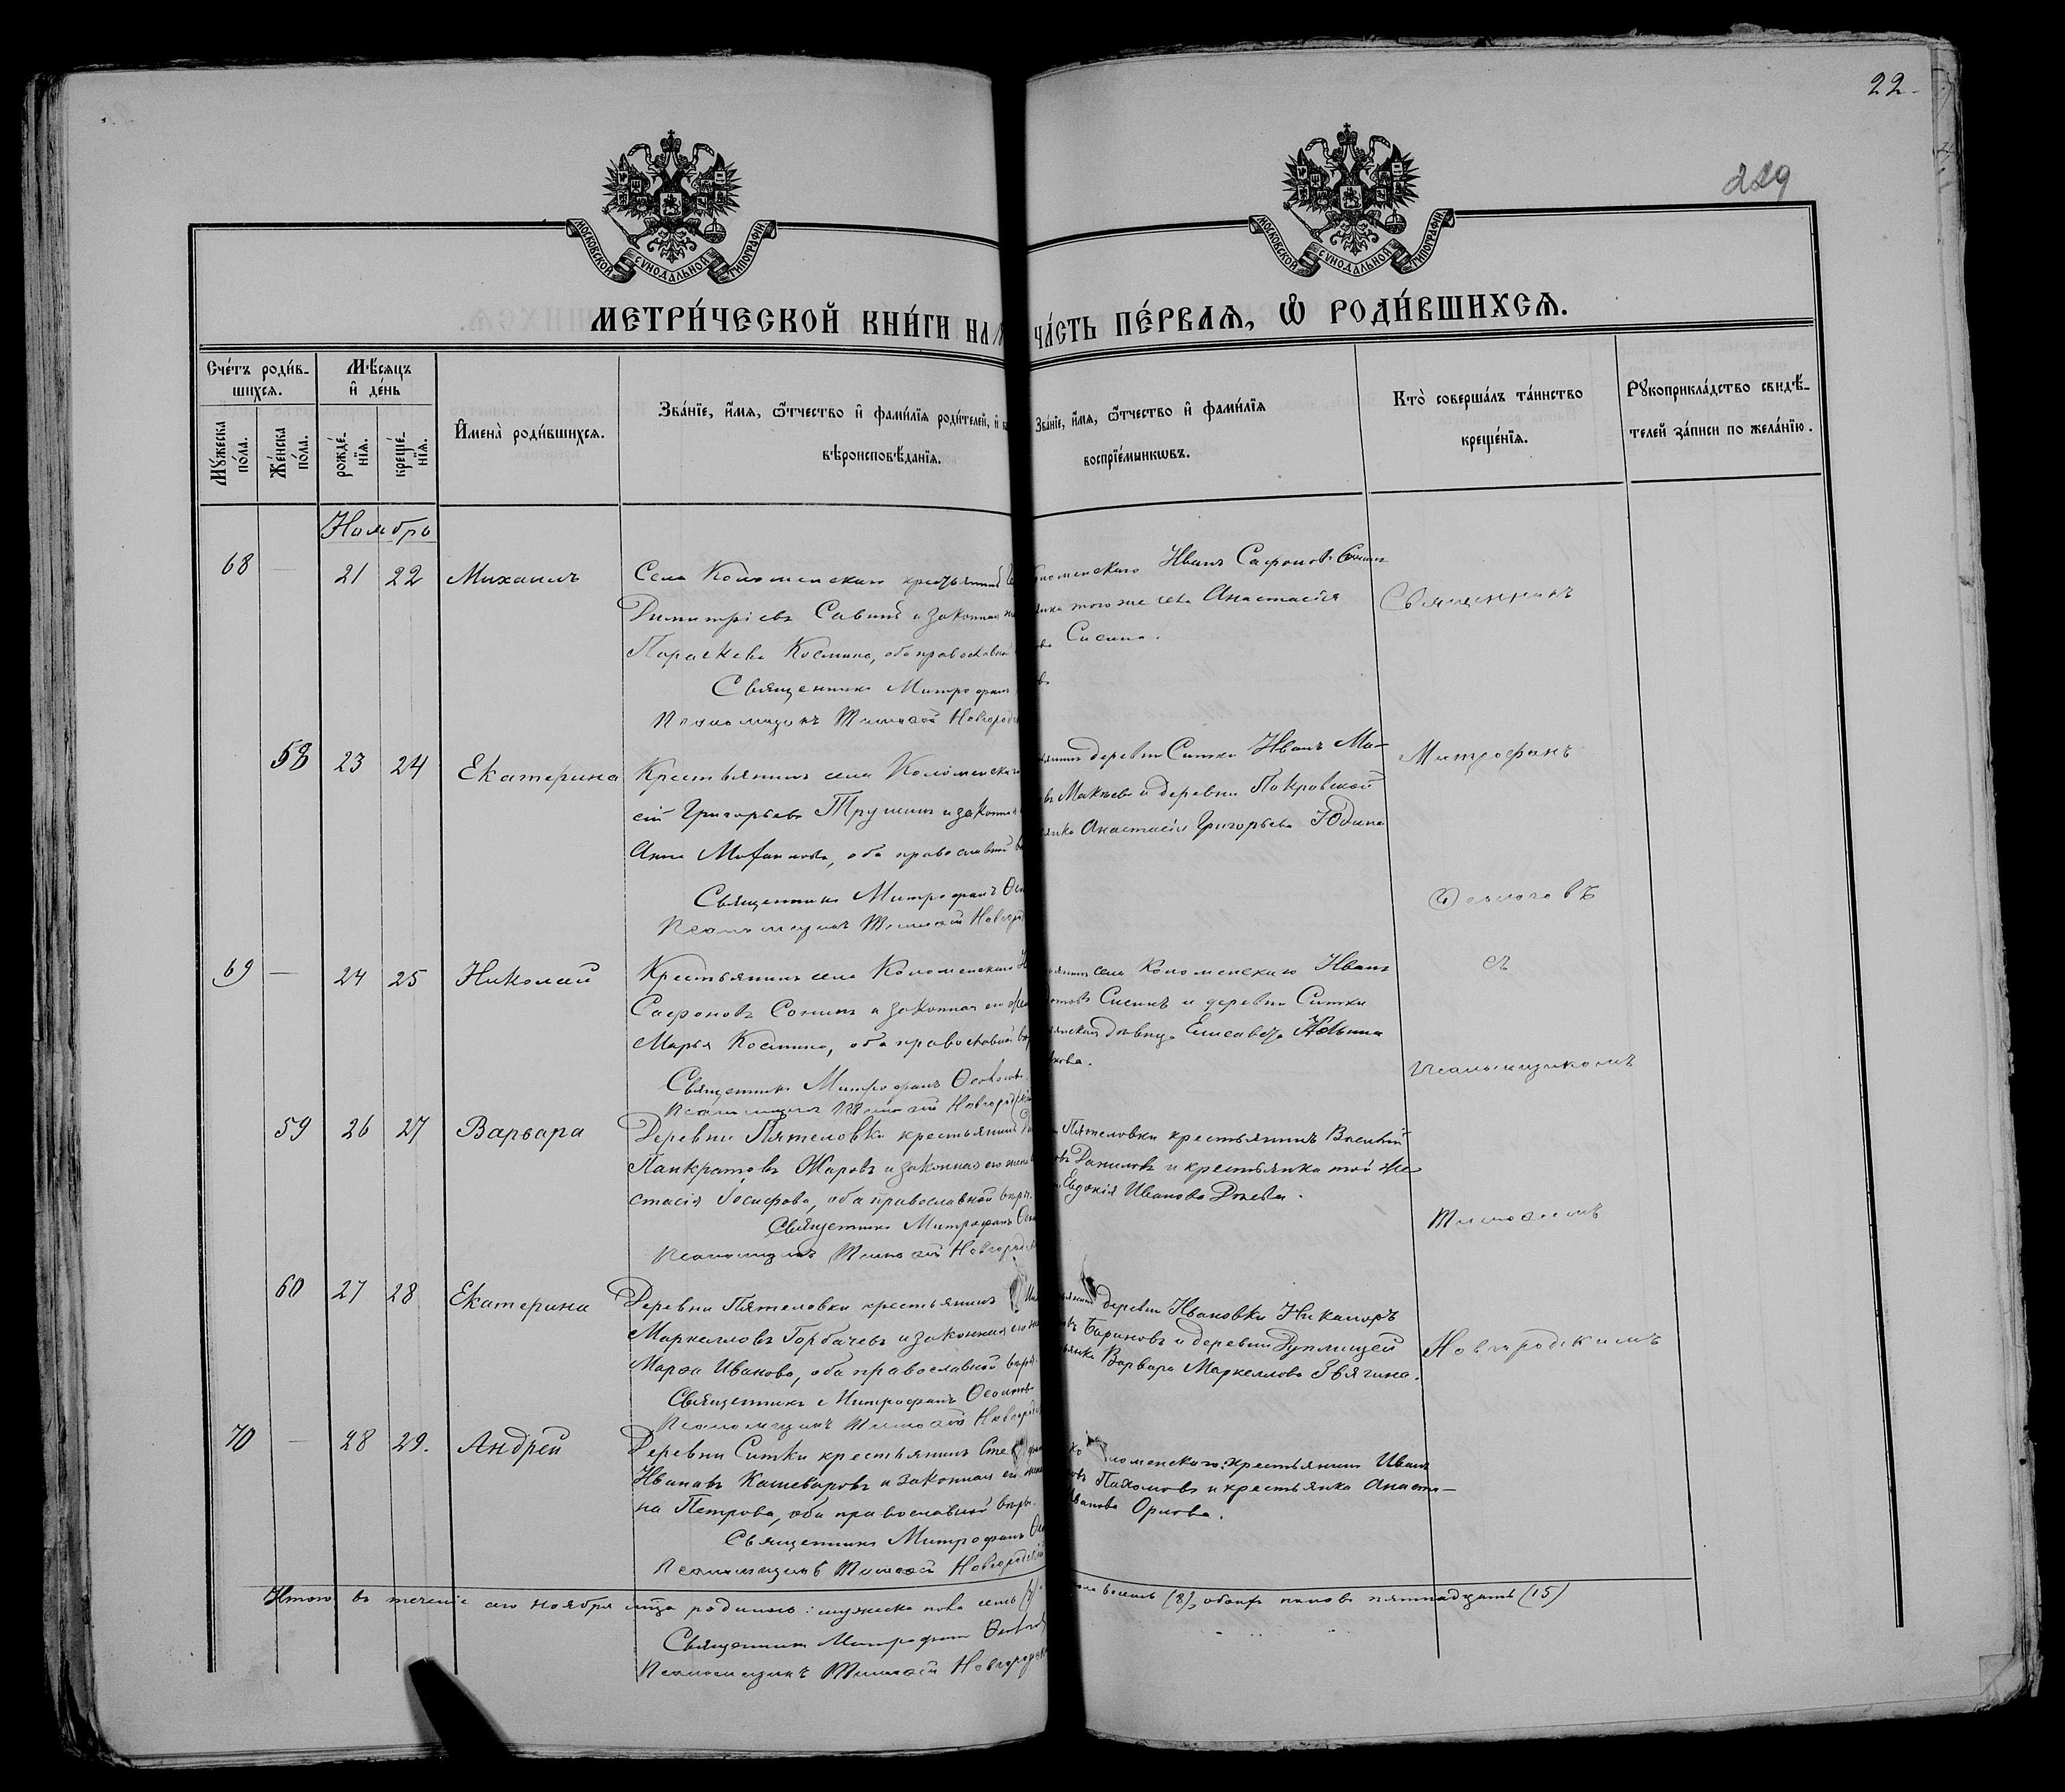 22.
229
МОСКОВСКОЙ СѴНОДАЛЬНОЙ ТИПОГРАФІИ
МОСКОВСКОЙ СѴНОДАЛЬНОЙ ТИПОГРАФІИ
МЕТРИ́ЧЕСКОЙ КНИ́ГИ НА
ЧА́СТЬ ПЕ́РВАѦ, Ѽ РОДИ́ВШИХСѦ.
Сче́тъ роди́в-
шихсѧ.
Мꙋ́жеска по́ла.
Же́нска по́ла.
Мѣ́сѧцъ
и҆ де́нь
рожде́-
нїѧ.
креще́-
нїѧ.
И҆мена̀ роди́вшихсѧ.
Зва́нїе, и҆́мѧ, ѻ҆́тчество и҆ фами́лїѧ роди́телей, и҆
вѣроисповѣ́данїѧ.
Зва́нїе, и҆́мѧ, ѻ҆́тчество и҆ фами́лїѧ
воспрїе́мникѡвъ.
Кто̀ соверша́лъ та́инство
креще́нїѧ.
Рꙋкоприкла́дство свидѣ́-
телей за́писи по жела́нїю.
Ноябрь
68 — 21 22 Михаилъ
Села Коломенскаго крестьянинъ
Димитріевъ Савинъ и законная
Параскева Космина, оба православной
Священникъ Митрофанъ
Псаломщикъ Тимоѳей Новгородскій
Иванъ Сафоновъ Сонинъ
того же села Анастасія
Сисина.
Священникъ
58 23 24 Екатерина
Крестьянинъ села Коломенскаго
сій Григорьевъ Трушинъ и законная
Анна, оба православной
Священникъ Митрофанъ
Псаломщикъ Тимоѳей
деревни Ситки Иванъ Ма-
Макѣевъ и деревни Покровской
Анастасія Григорьева Юдина
Митрофанъ
Ѳеологовъ
69 — 24 25 Николай
Крестьянинъ села Коломенскаго
Сафоновъ Сонинъ и законная его
Марья Космина, оба православной
Священникъ Митрофанъ Ѳеологовъ
Псаломщикъ Тимоѳей Новгородскій
села Коломенскаго Иванъ
Сисинъ и деревни Ситки
дѣвица Елисавета
съ
псаломщикомъ
59 26 27 Варвара
Деревни Пятеловки крестьянинъ
Панкратовъ Жаровъ и законная его жена
стасія Іосифова, оба православной вѣры.
Священникъ Митрофанъ
Псаломщикъ Тимоѳей
Пятеловки крестьянинъ Василій
Даниловъ и крестьянка той же
Евдокія Иванова
Тимоѳеемъ
60 27 28 Екатерина
Деревни Пятеловки крестьянинъ
Маркелловъ Горбачевъ и законная его
Марѳа Иванова, оба православной вѣры.
Священникъ Митрофанъ Ѳеологовъ
Псаломщикъ Тимоѳей
деревни Ивановки Никаноръ
Бариновъ и деревни
Варвара Маркеллова Звягина.
Новгородскимъ
70 — 28 29. Андрей
Деревни Ситки крестьянинъ
Ивановъ Кашеваровъ и законная его
на Петрова, оба православной вѣры.
Священникъ Митрофанъ
Псаломщикъ Тимоѳей Новгородскій
крестьянинъ Иванъ
Пахомовъ и крестьянка Анаста-
Иванова Орлова.
Итого въ теченіе сего ноября мѣсяца родилось: мужеска пола семь (7)
восемь (8), обоихъ половъ пятнадцать (15)
Священникъ Митрофанъ
Псаломщикъ Тимоѳей